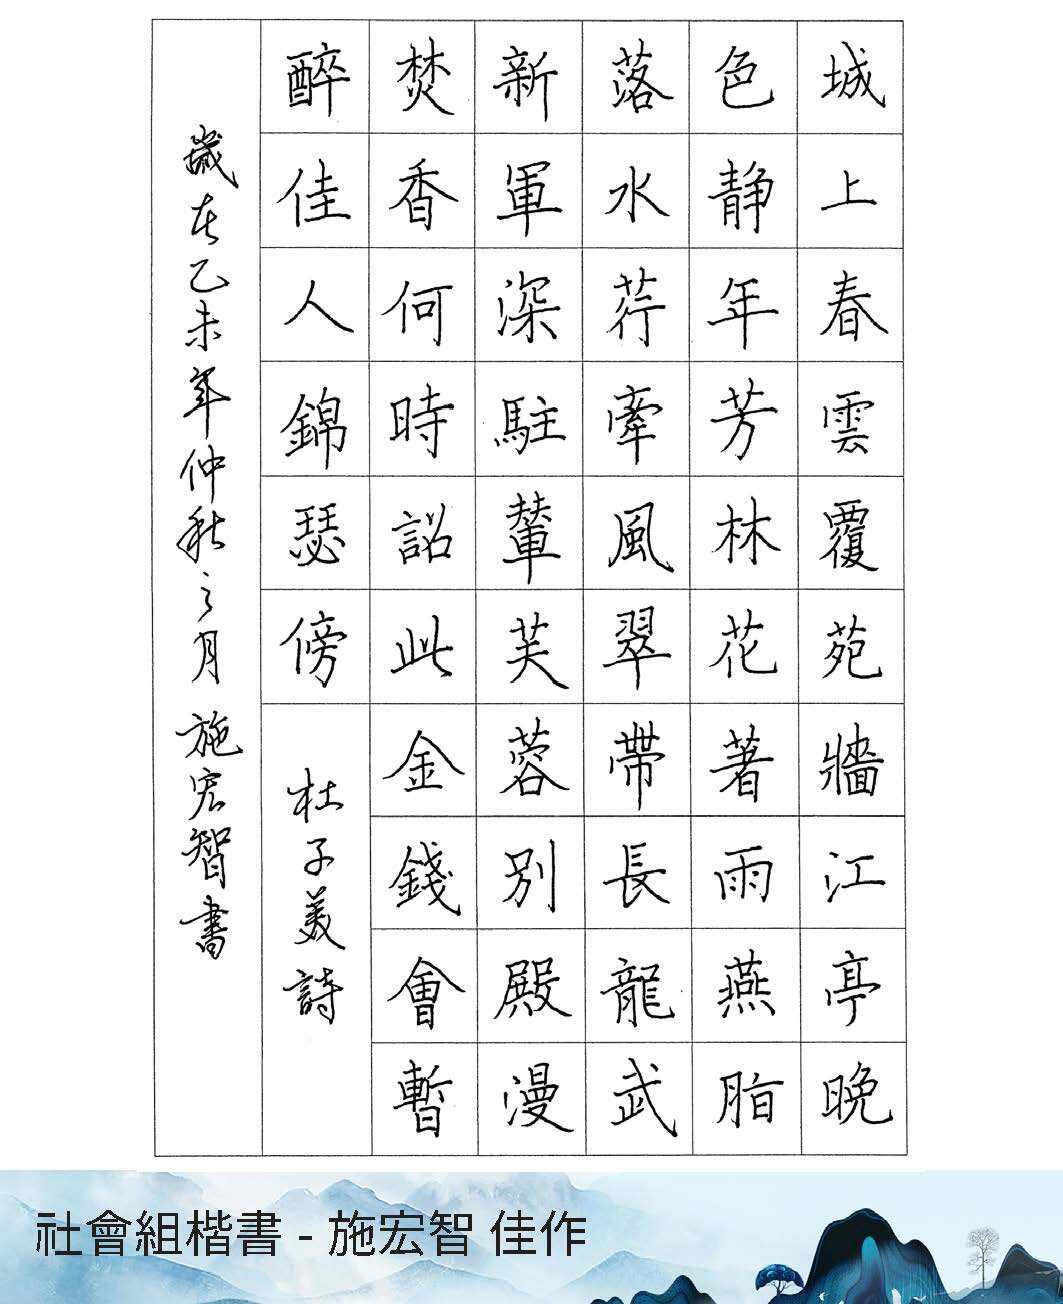 城上春雲覆苑牆江亭晚
色静年芳林花著雨燕脂
落水荇牽風翠帶長龍武
新軍深駐輦芙蓉別殿漫
焚香何時詔此金錢會暫
醉佳人錦瑟傍
杜子美詩
歲在乙未年仲秋之月 施宏智書
社會組楷書 - 施宏智 佳作